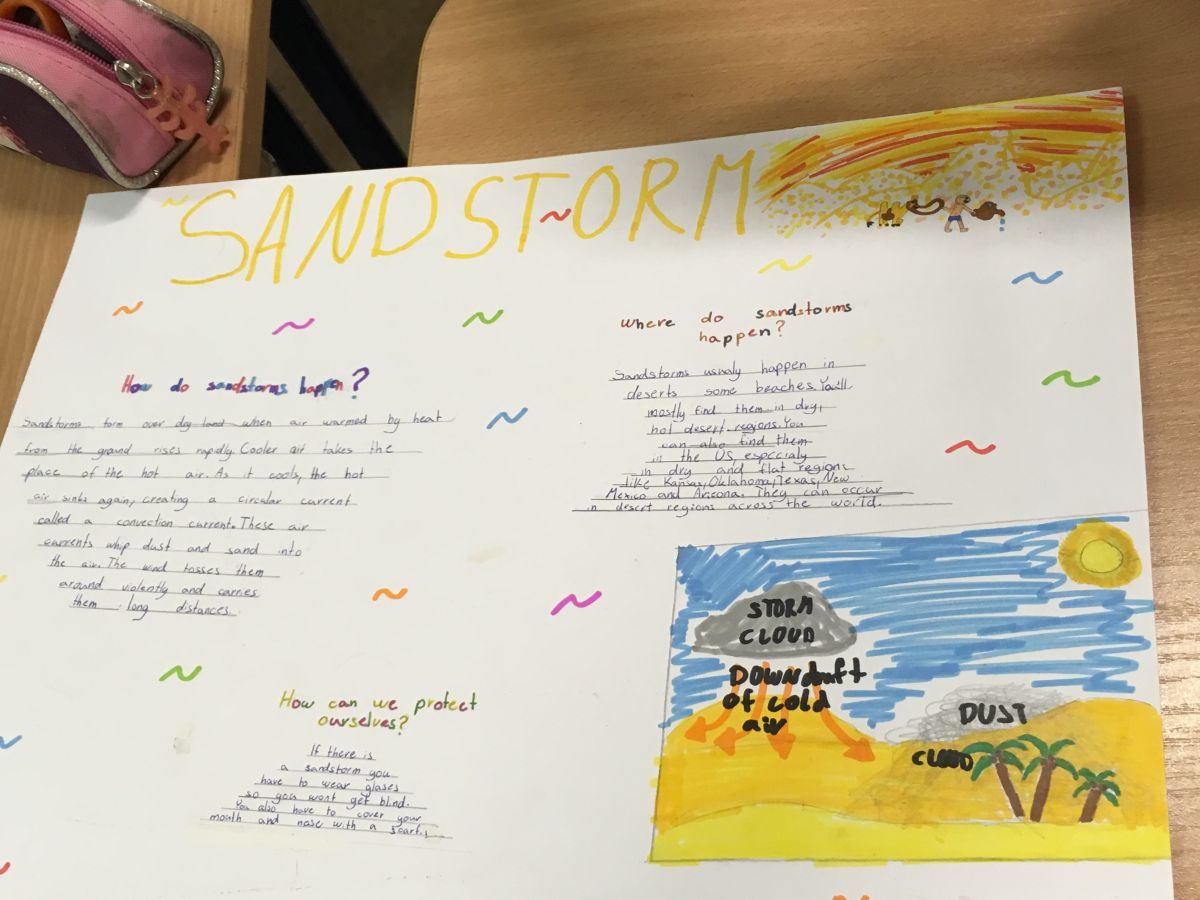 SANDSTORM
How do sandstorms happen?
Sandstorms form over dry land when air warmed by heat
from the ground rises rapidly. Cooler air takes the
place of the hot air. As it cools, the hot
air sinks again, creating a circular current
called a convection current. These air
currents whip dust and sand into
the air. The wind tosses them
around violently and carries
them long distances.
Where do sandstorms
happen?
Sandstorms usualy happen in
deserts some beaches. You'll
mostly find them in dry,
hot desert regions. You
can also find them
in the US, especcialy
in dry and flat regions
like Kansas, Oklahoma, Texas, New
Mexico and Arizona. They can occur
in desert regions across the world.
How can we protect
ourselves?
If there is
a sandstorm you
have to wear glases
so you wont get blind.
You also have to cover your
mouth and nose with a scarf.
STORM
CLOUD
DOWNdraft
of cold
air
DUST
CLOUD